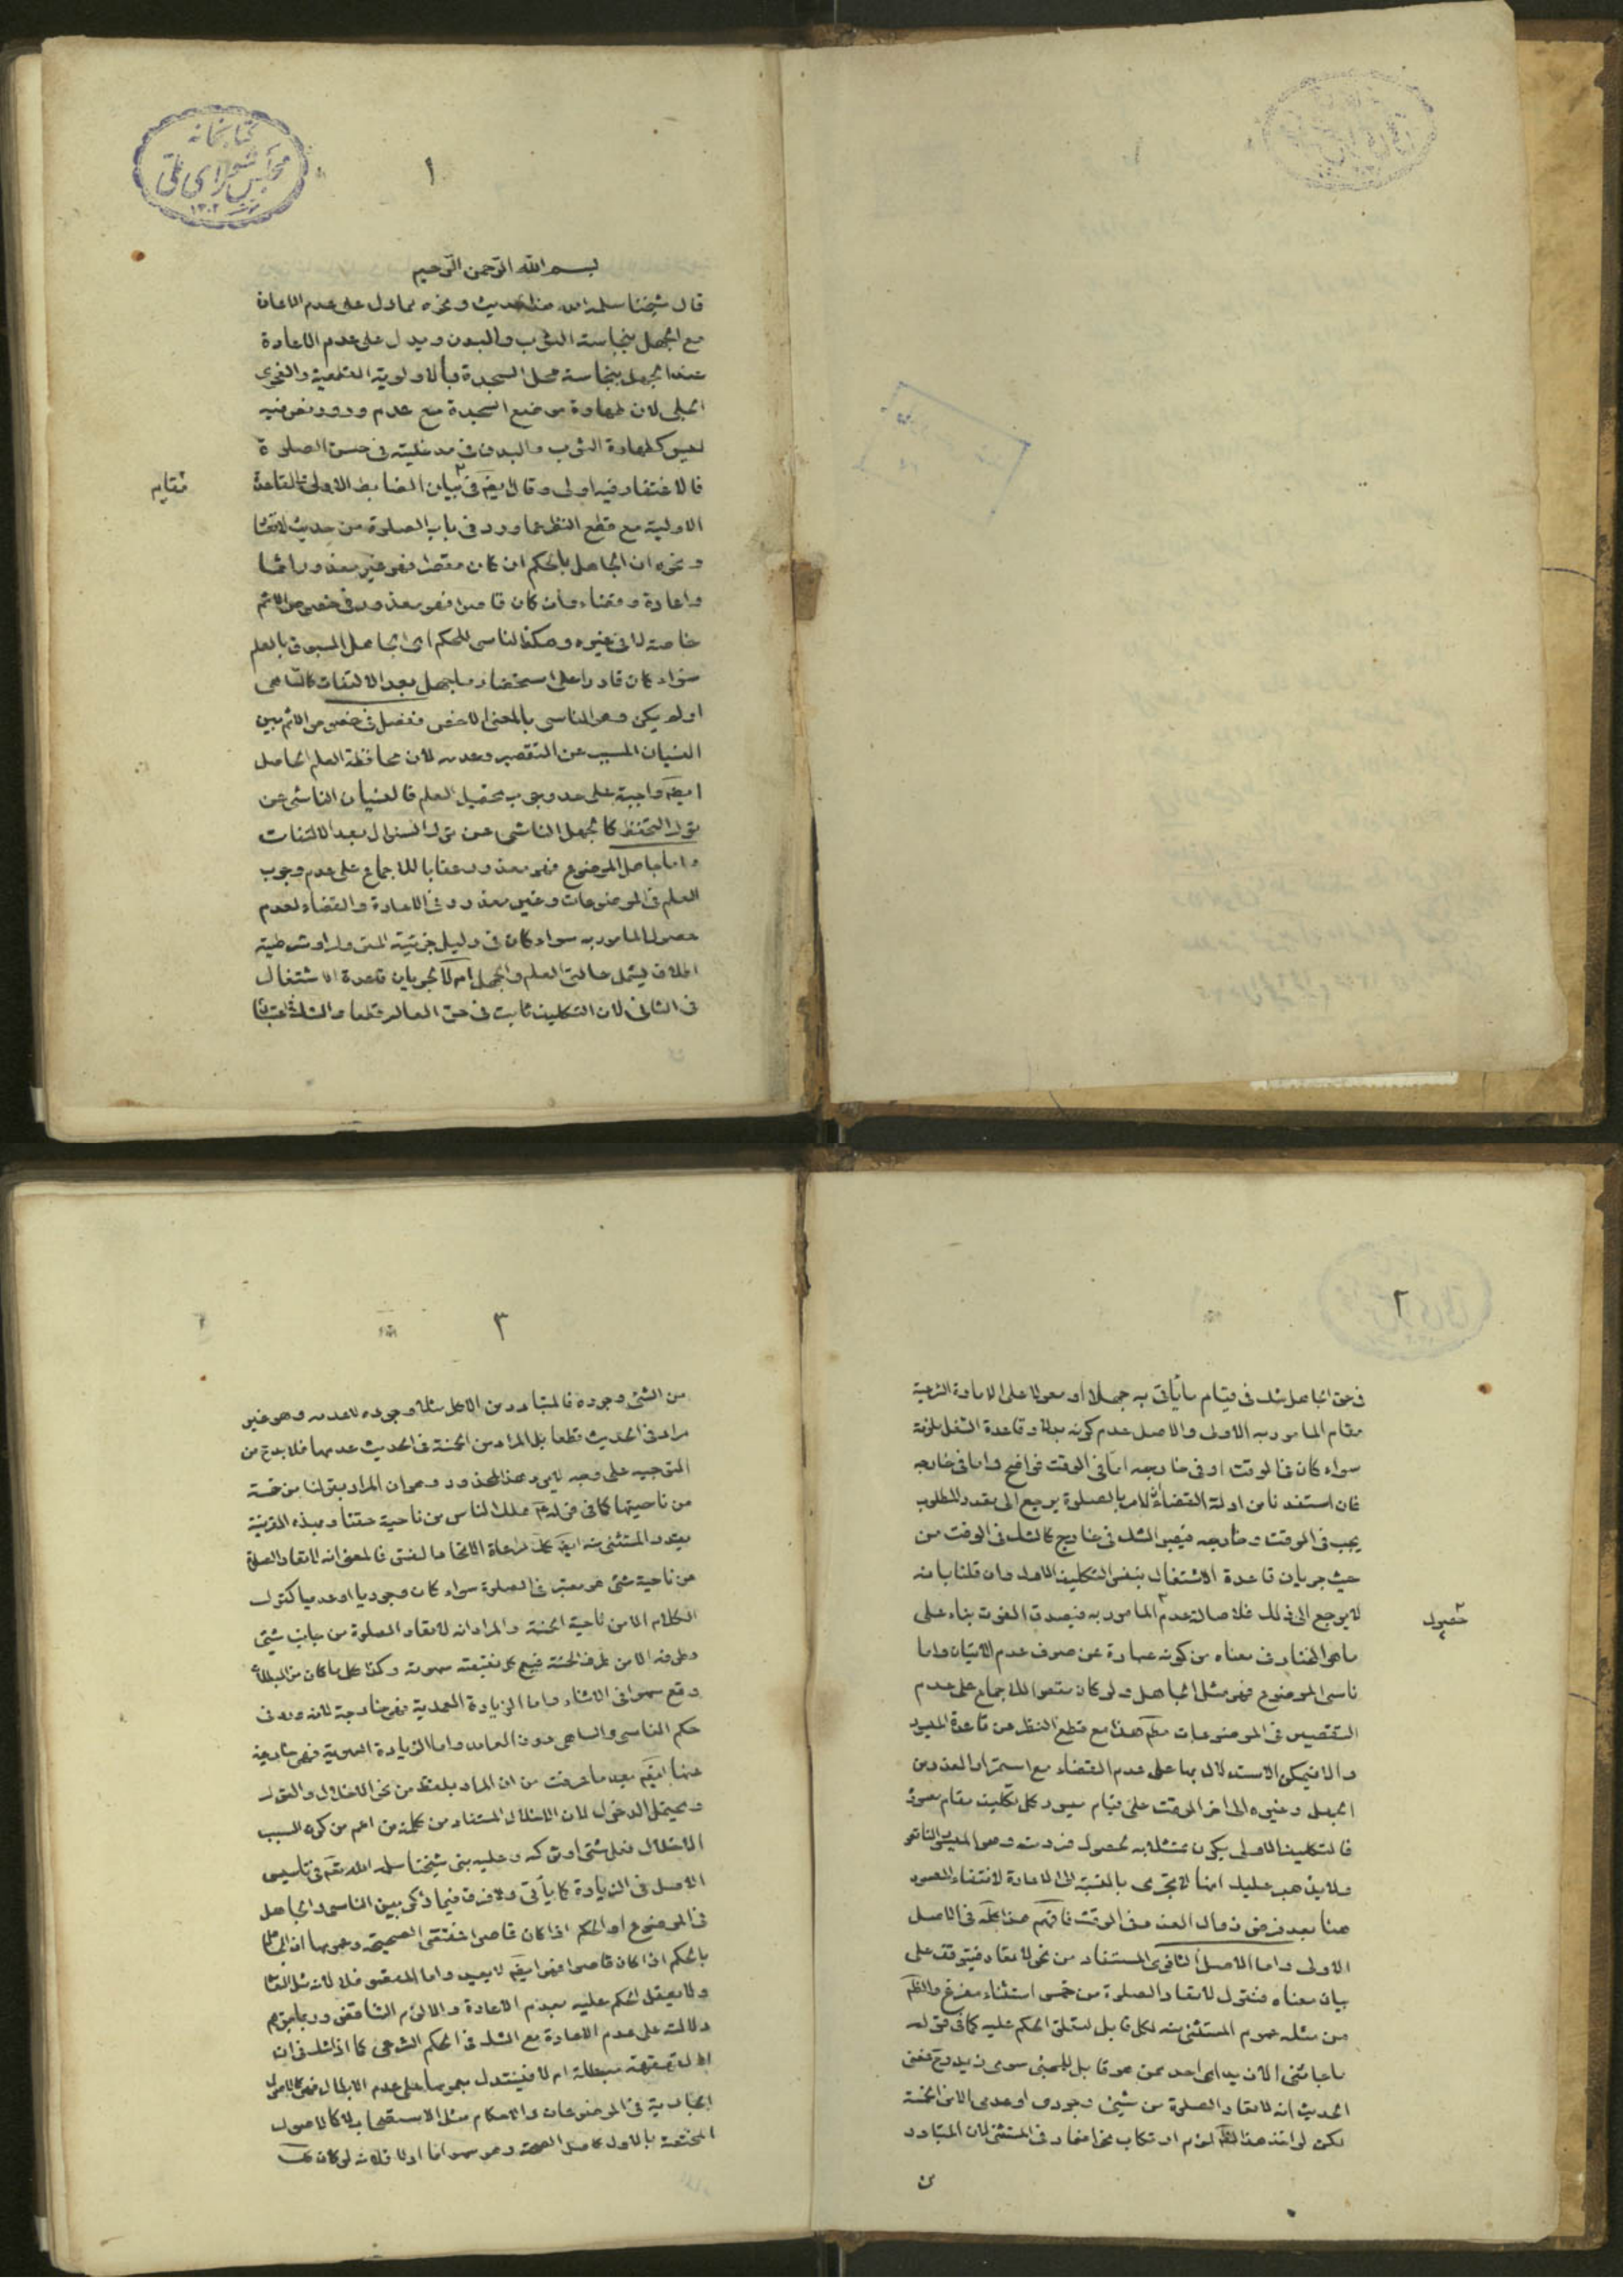 كتابخانه
مجلس شورای ملی
١٣٠٢
١
بسم الله الرحمن الرحيم
قال شيخنا سلمه الله هذا الحديث ونحوه مما دل على عدم الاعادة
مع الجهل بنجاسة الثوب والبدن ويدل على عدم الاعادة
عند الجهل بنجاسة محل السجدة بالاولوية القطعية والفحوى
الجلى لان طهارة موضع السجدة مع عدم ورود نص فيه
ليس كطهارة الثوب والبدن فى مدخليته فى حسن الصلوة
فالاغتفار فيه اولى وقال ايضا فى بيان الضابط الاولى القاعدة
مقابله
الاولية مع قطع النظر عما ورد فى باب الصلوة من حديث لاتعاد
ونحوه ان الجاهل بالحكم ان كان مقصرا فهو غير معذور اثما
واعادة وقضاء وان كان قاصرا فهو معذور فى خصوص الاثم
خاصة لا فى غيره وهكذا الناسى للحكم اى الجاهل المسبوق بالعلم
سواء كان قادرا على استحضار ما جهل بعد الالتفات كالساهى
او لم يكن وهو الناسى بالمعنى الاخص فنفصل فى خصوص الاثم بين
النسيان المسبب عن التقصير وعدمه لان محافظة العلم الحاصل
ايضا واجبة على حد وجوب تحصيل العلم فالنسيان الناشى عن
ترك التحفظ كالجهل الناشى عن ترك السئوال بعد الالتفات
واما جاهل الموضوع فهو معذور عقابا للاجماع على عدم وجوب
العلم فى الموضوعات وغير معذور فى الاعادة والقضاء لعدم
حصول المامور به سواء كان فى دليل جزئية المتروك او شرطيته
اطلاق يشمل حالتى العلم والجهل ام لا لجريان قاعدة الاشتغال
فى الثانى لان التكليف ثابت فى حق العالم قطعا والشك
٢
فى حق الجاهل شك فى قيام ما يأتى به جهلا او معولا على الامارة الشرعية
مقام المامور به الاولى والاصل عدم كونه بدلا وقاعدة الشغل ملزمة
سواء كان فى الوقت او فى خارجه اما فى الوقت فواضح واما فى خارجه
فان استفدنا من ادلة القضاء ان الامر بالصلوة يرجع الى تعدد المطلوب
يجب فى الوقت وخارجه فيصير الشك فى خارج كالشك فى الوقت من
حيث جريان قاعدة الاشتغال بنفس التكليف الاول وان قلنا بانه
لا يرجع الى ذلك فلاصالة عدم المامور به فيصدق الفوت بناء على
حصول
ما هو المختار فى معناه من كونه عبارة عن صرف عدم الاتيان واما
ناسى الموضوع فهو مثل الجاهل ولو كان مقصرا للاجماع على عدم
التقصير فى الموضوعات هذا مع قطع النظر عن قاعدة الميسور
والا فيمكن الاستدلال بها على عدم القضاء مع استمرار العذر من
الجهل وغيره الى اخر الوقت على قيام ميسور كل تكليف مقام معسوره
فالتكليف الاولى يكون ممتثلا به لحصول فرد منه وهو الميسور الناقص
ولا يذهب عليك انها لا تجرى بالنسبة الى الاعادة لانتفاء المعسور
هنا بعد فرض زوال العذر فى الوقت فافهم هذا كله فى الاصل
الاولى واما الاصل الثانوى المستفاد من نحو لا تعاد فيتوقف على
بيان معناه فنقول لا تعاد الصلوة من خمس استثناء مفرغ والظاهر
من مثله عموم المستثنى منه لكل قابل لتعلق الحكم عليه كما فى قوله
ما جائنى الا زيد اى احد ممن هو قابل للمجئى سوى زيد فمعنى
الحديث انه لا تعاد الصلوة من شيئ وجودى او عدمى الا من الخمسة
لكن لو اخذ هذا لزم ارتكاب نحو اضمار فى المستثنى لان المتبادر
٣
من الشئى وجوده فالمتبادر من الاكل مثلا وجوده لا عدمه وهو غير
مراد فى الحديث قطعا بل المراد من الخمسة فى الحديث عدمها فلا بد ح من
التوجيه على وجه لا يرد هذا المحذور وهو ان المراد بقولنا من خمسة
من ناحيتها كما فى قوله هلك الناس من ناحية حقنا وبهذه القرينة
يقدر المستثنى منه ايضا كك لمراعاة الاتحاد فالمعنى انه لا تعاد الصلوة
من ناحية شئى هو معتبر فى الصلوة سواء كان وجوديا او عدميا كترك
الكلام الا من ناحية الخمسة والمراد انه لا تعاد الصلوة من جانب شئى
وطرفه الا من طرف الخمسة فيعم كل نقيصة سهوية وكذا كل ما كان مبطلا
وقع سهوا فى الاثناء واما الزيادة العمدية فهى خارجة لانه ورد فى
حكم الناسى والساهى دون العامد واما الزيادة السهوية فهى خارجة
عنها ايضا بعد ما عرفت من ان المراد بلفظ من نحو الاخلال والترك
ويحتمل الدخول لان الاخلال المستفاد من كلمة من اعم من كون السبب
الاخلال فعل شئى او تركه وعليه بنى شيخنا سلمه الله فى تاسيس
الاصل فى الزيادة كما يأتى ولا فرق فيما ذكر بين الناسى والجاهل
فى الموضوع او الحكم اذا كان قاصرا فمقتضى الصحيحة وعمومها ان الجاهل
بالحكم اذا كان قاصرا فهو ايضا لا يعيد واما المقصر فلا لانه مثل العامد
ولا يعقل الحكم عليه بعدم الاعادة والا لزم التناقض وربما يتوهم
دلالته على عدم الاعادة مع الشك فى الحكم الشرعى كما اذا شك فى ان
القهقهة مبطلة ام لا فيستدل بعمومها على عدم الابطال فهى كالاصول
الجارية فى الموضوعات والاحكام مثل الاستصحاب لا كالاصول
المختصة بالاول كاصل الصحة وهو سهو اما اولا فلانه لو كان كك